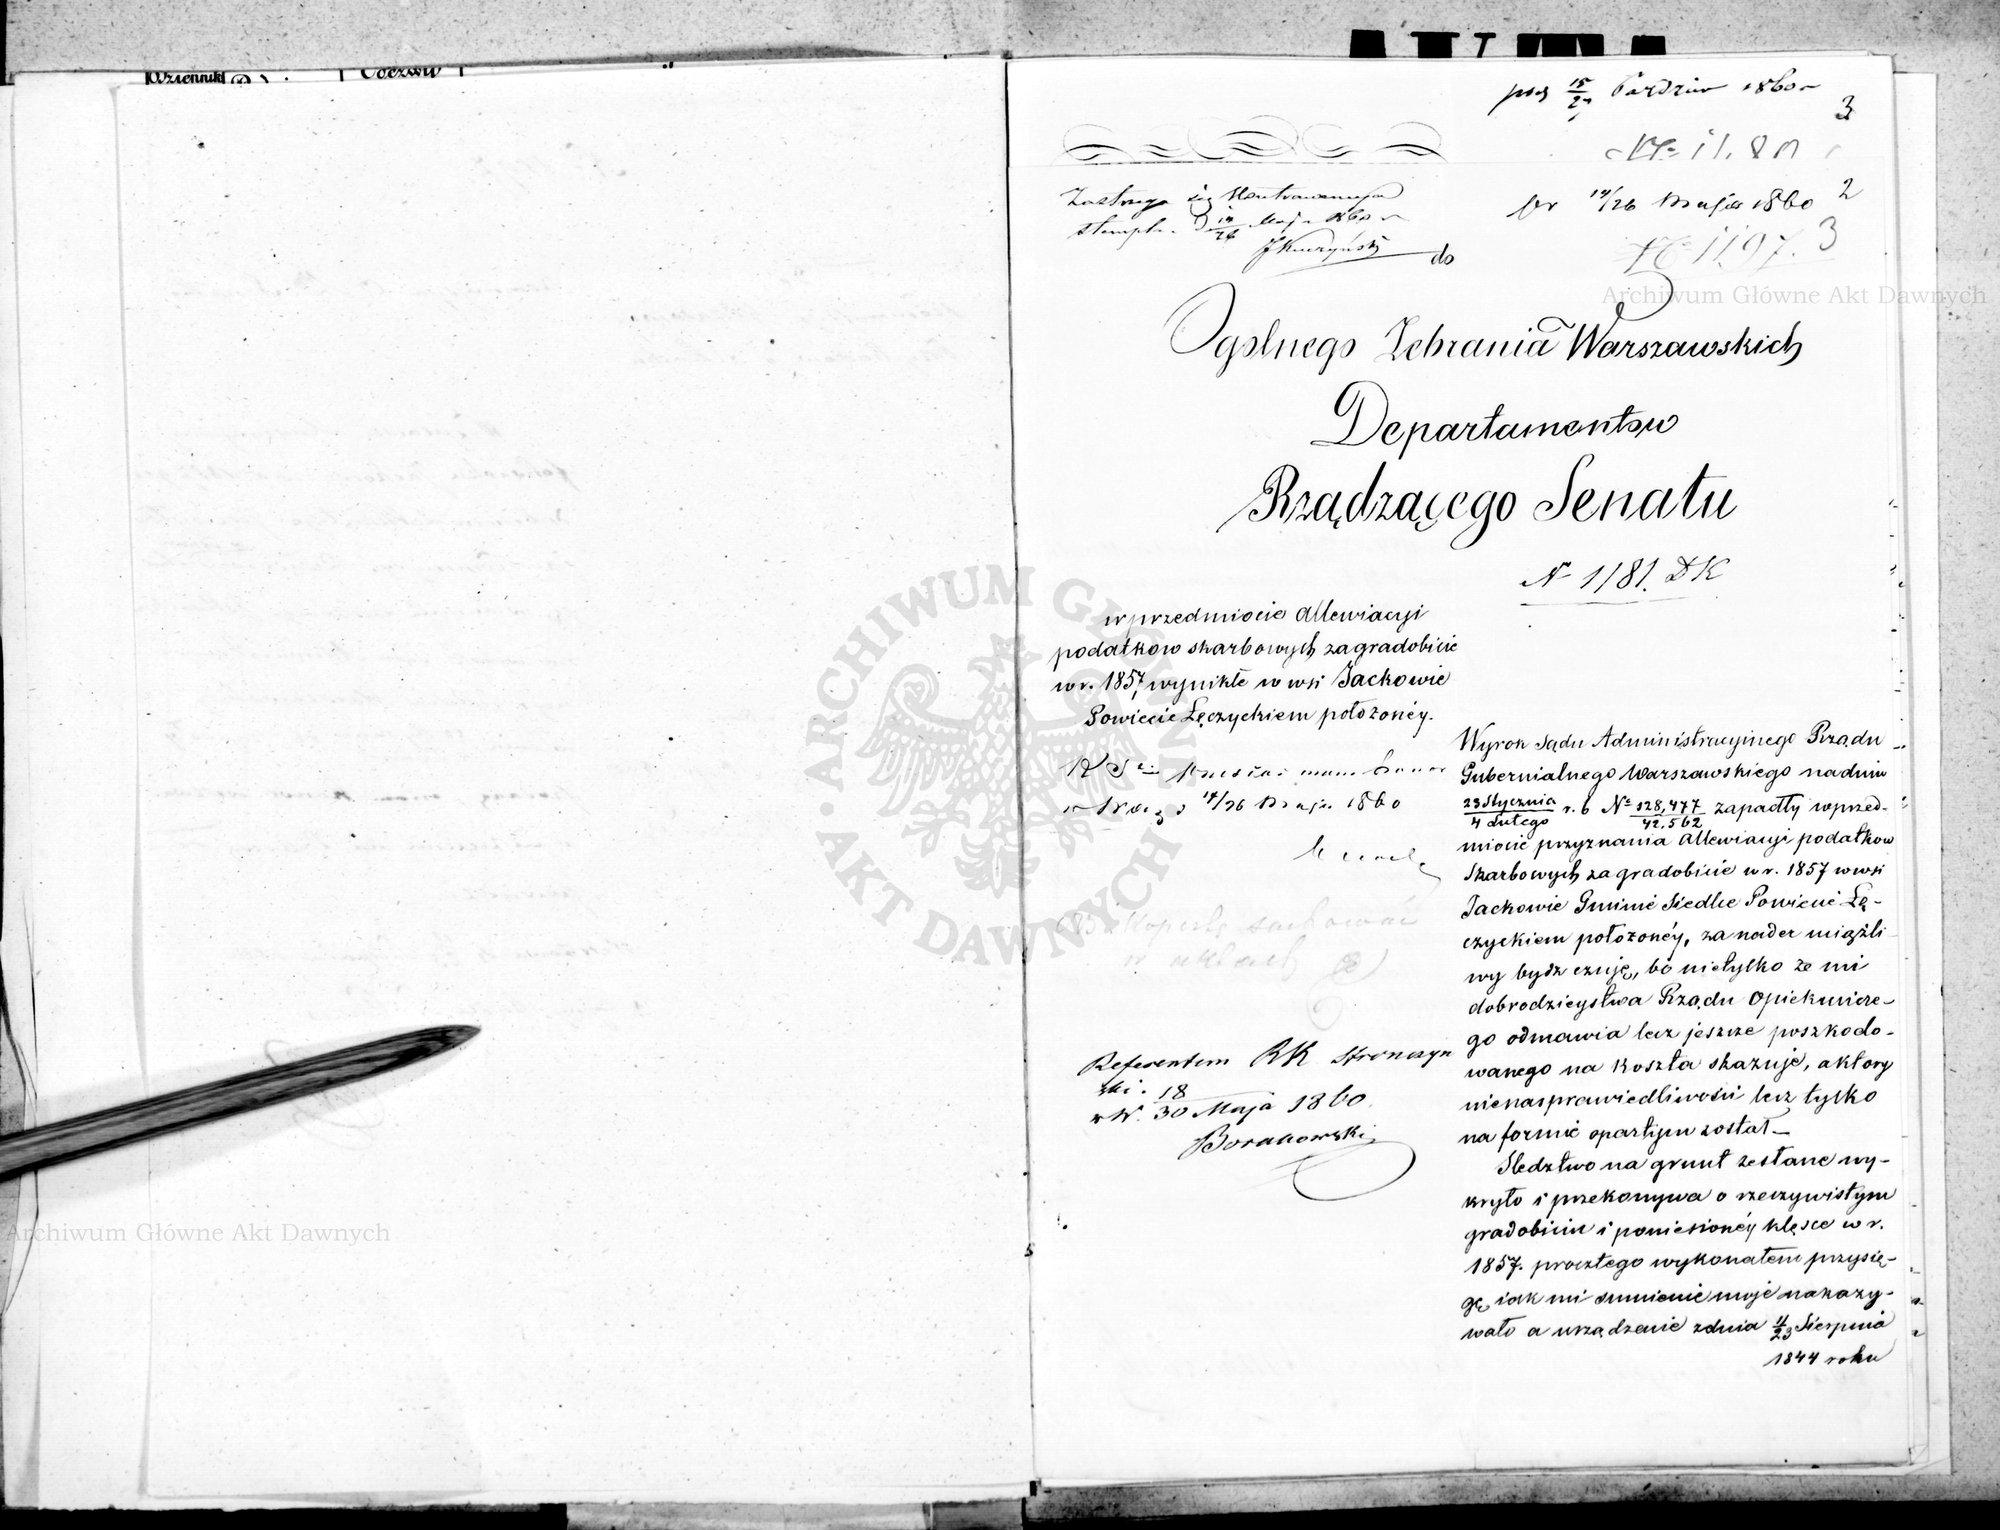 15/27 Paździer 1860
3
14/26 Maja 1860 2
1197. 3
do
Ogólnego Zebrania Warszawskich
Departamentow
Rządzącego Senatu
N 1181. DK
w przedmiocie Allewiacyi
podatkow skarbowych za gradobicie
w r. 1857 wynikłe w wsi Jackowie
Powiecie Łęczyckiem położonéy.
14/26 Maja 1860
zachować
w aktach
Referentem RK Stronczyń
ski. 18
w W. 30 Maja 1860
Wyrok Sądu Administracyinego Rządu
Gubernialnego Warszawskiego na dniu
23 Stycznia/4 Lutego r. b № 128,477/42,562 zapadły w przed-
miocie przyznania Allewiacyi podatkow
Skarbowych za gradobicie w r. 1857 w wsi
Jackowie Gminie Siedlce Powiecie Łę-
czyckiem położonéy, za nader uciążli
wy bydz czuję, bo nietylko że mi
dobrodzieystwa Rządu Opiekuńcze-
go odmawia lecz jeszcze poszkodo-
wanego na koszta skazuje, a który
nie na sprawiedliwości lecz tylko
na formie opartym został_
Sledztwo na grunt zesłane wy-
kryło i przekonywa o rzeczywistym
gradobiciu i poniesionéy klęsce w r.
1857. procz tego wykonałem przysię-
gę iak mi sumienie moje nakazy-
wało a urządzenie z dnia 11/23 Sierpnia
1844 roku
Archiwum Główne Akt Dawnych
ARCHIWUM GŁÓWNE AKT DAWNYCH
Archiwum Główne Akt Dawnych